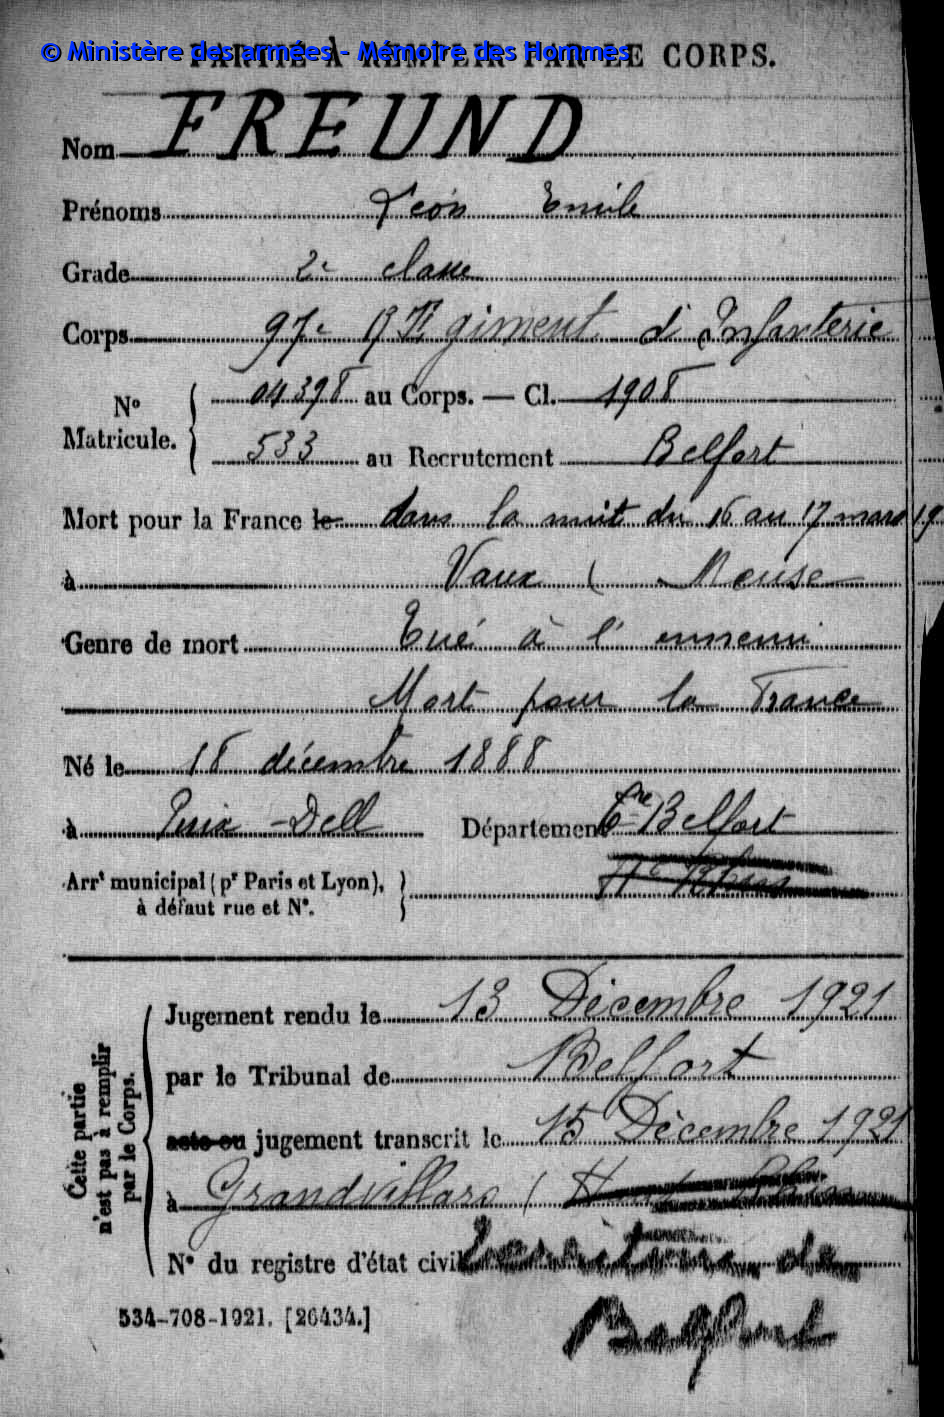 © Ministère des armées - Mémoire des Hommes
PARTIE À REMPLIR PAR LE CORPS.
Nom FREUND
Prénoms Léon Emile
Grade 2e classe
Corps 97e Régiment d'Infanterie
No Matricule. { 04398 au Corps. — Cl. 1908
533 au Recrutement Belfort
Mort pour la France le dans la nuit du 16 au 17 mars 19
à Vaux ( Meuse
Genre de mort Tué à l'ennemi
Mort pour la France
Né le 18 décembre 1888
à Département Tre Belfort
Arrt municipal (pr Paris et Lyon), à défaut rue et No. } Ht Rhin
Cette partie n'est pas à remplir par le Corps.
Jugement rendu le 13 Décembre 1921
par le Tribunal de Belfort
acte ou jugement transcrit le 15 Décembre 1921
à Grandvillars (
No du registre d'état civil Territoire de
Belfort
534-708-1921. [26434.]